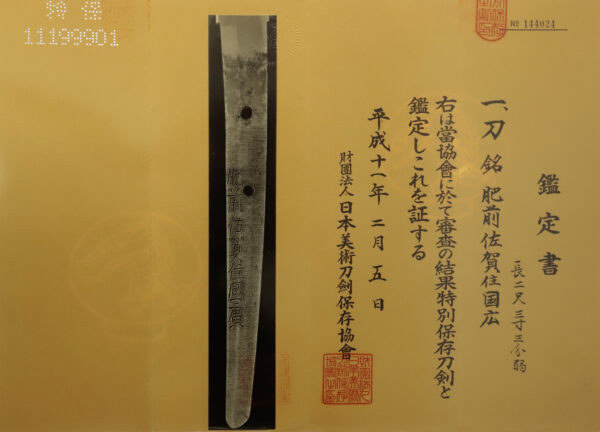 № 144024
鑑定書
一、刀 銘 肥前佐賀住国広
長二尺三寸三分弱
右は當協會に於て審査の結果特別保存刀剣と
鑑定しこれを証する
平成十一年二月五日
財團法人 日本美術刀劍保存協會
特保
11199901
肥前佐賀住國廣